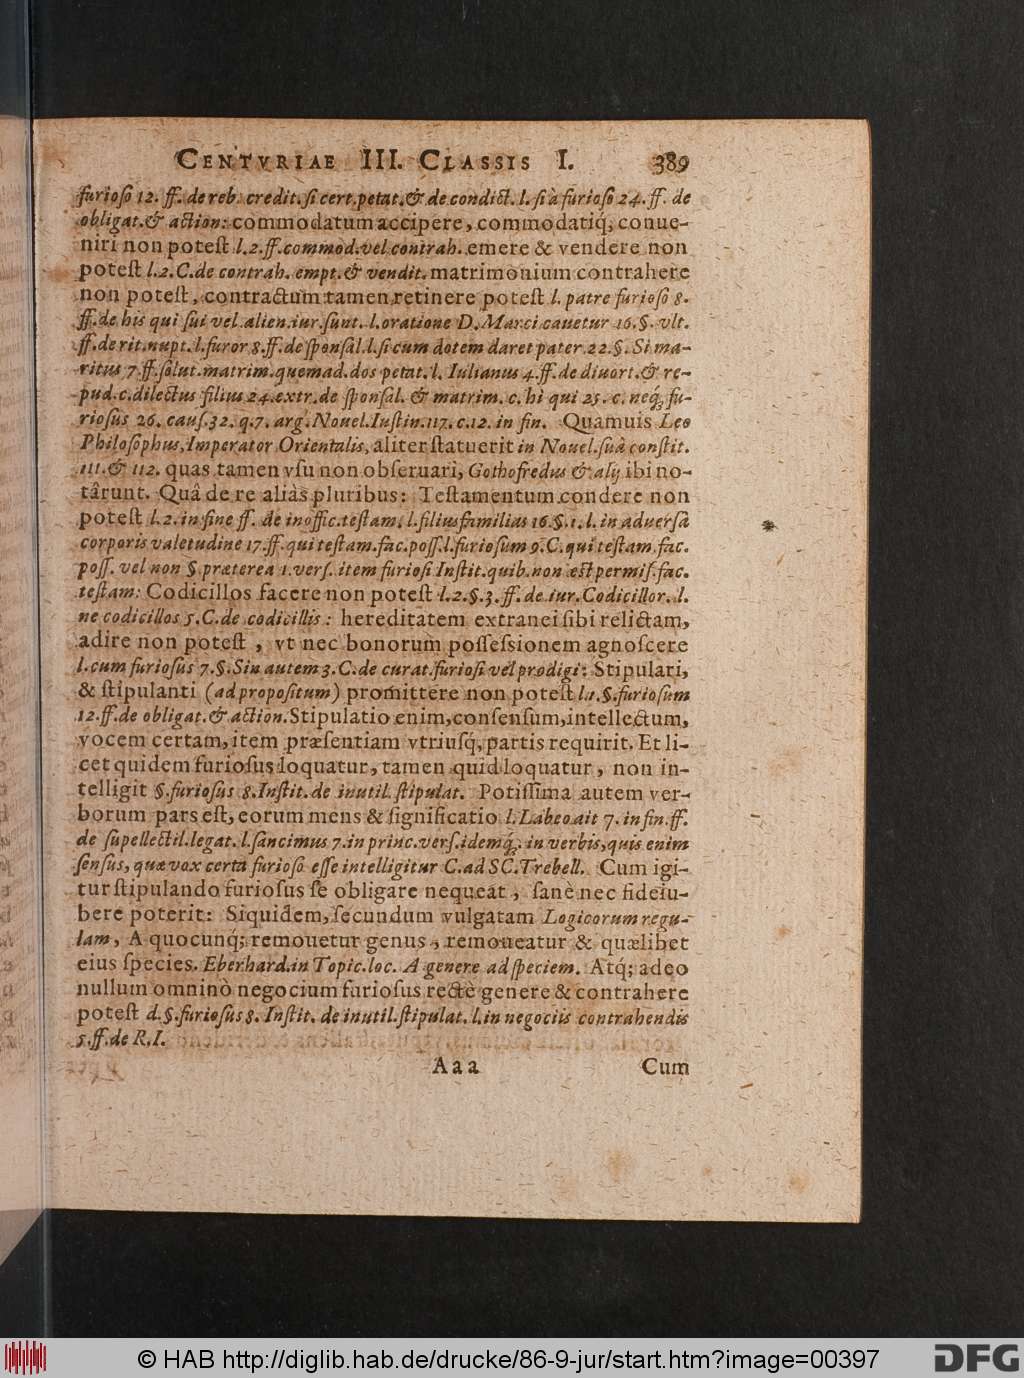 CENTVRIAE III. CLASSIS I. 389
furioſo 12. ff. de reb. credit. ſi cert. petat. & de condict. l. ſi à furioſo 24. ff. de
obligat. & action: commodatum accipere, commodatiq́; conue-
niri non poteſt l. 2. ff. commod. vel contrah. emere & vendere non
poteſt l. 2. C. de contrah. empt. & vendit. matrimonium contrahere
non poteſt, contractum tamen retinere poteſt l. patre furioſo 8.
ff. de his qui ſui vel alien. iur. ſunt. l. oratione D. Marci cauetur 16. §. vlt.
ff. de rit. nupt. l. furor 8. ff. de ſponſal. l. ſi cum dotem daret pater 22. §. Si ma-
ritus 7. ff. ſolut. matrim. quemad. dos petat. l. Iulianus 4. ff. de diuort. & re-
pud. c. dilectus filius 24. extr. de ſponſal. & matrim. c. hi qui 25. c. neq́; fu-
rioſus 26. cauſ. 32. q. 7. arg. Nouel. Iuſtin. 117. c. 12. in fin. Quamuis Leo
Philoſophus, Imperator Orientalis, aliter ſtatuerit in Nouel. ſuâ conſtit.
111. & 112. quas tamen vſu non obſeruari, Gothofredus & alij ibi no-
târunt. Quâ de re aliàs pluribus: Teſtamentum condere non
poteſt l. 2. in fine ff. de inoffic. teſtam. l. filius familias 16. §. 1. l. in aduerſâ
corporis valetudine 17. ff. qui teſtam. fac. poſſ. l. furioſum 9. C. qui teſtam. fac.
poſſ. vel non §. præterea 1. verſ. item furioſi Inſtit. quib. non est permiſ. fac.
teſtam: Codicillos facere non poteſt l. 2. §. 3. ff. de iur. Codicillor. l.
ne codicillos 5. C. de codicillis: hereditatem extranei ſibi relictam,
adire non poteſt, vt nec bonorum poſſeſsionem agnoſcere
l. cum furioſus 7. §. Sin autem 3. C. de curat. furioſi vel prodigi: Stipulari,
& ſtipulanti (ad propoſitum) promittere non poteſt l. 1. §. furioſum
12. ff. de obligat. & action. Stipulatio enim, conſenſum, intellectum,
vocem certam, item præſentiam vtriuſq́; partis requirit. Et li-
cet quidem furioſus loquatur, tamen quid loquatur, non in-
telligit §. furioſus 8. Inſtit. de inutil. ſtipulat. Potiſſima autem ver-
borum pars eſt, eorum mens & ſignificatio l. Labeo ait 7. in fin. ff.
de ſupellectil. legat. l. ſancimus 7. in princ. verſ. idemq́; in verbis, quis enim
ſenſus, quæ vox certa furioſo eſſe intelligitur C. ad SC. Trebell. Cum igi-
tur ſtipulando furioſus ſe obligare nequeat, ſanè nec fideiu-
bere poterit: Siquidem, ſecundum vulgatam Logicorum regu-
lam, A quocunq́; remouetur genus, remoueatur & quælibet
eius ſpecies. Eberhard. in Topic. loc. A genere ad ſpeciem. Atq́; adeo
nullum omninò negocium furioſus rectè genere & contrahere
poteſt d. §. furioſus 8. Inſtit. de inutil. ſtipulat. l. in negociis contrahendis
5. ff. de R. I.
Aaa Cum
© HAB http://diglib.hab.de/drucke/86-9-jur/start.htm?image=00397
DFG